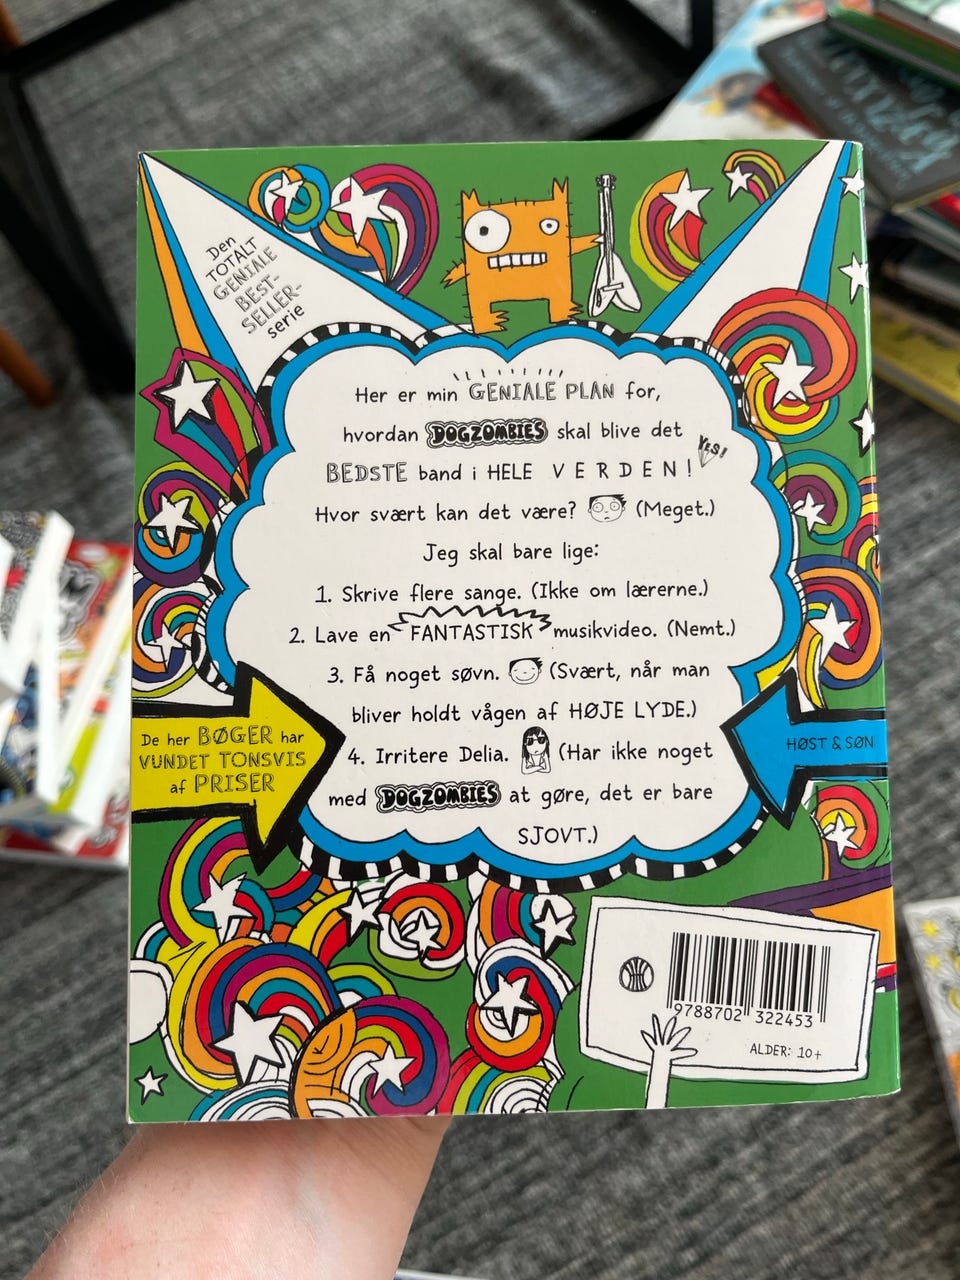 Den
TOTALT
GENIALE
BEST-
SELLER-
serie
Her er min GENIALE PLAN for,
hvordan DOGZOMBIES skal blive det
BEDSTE band i HELE VERDEN!
YES!
Hvor svært kan det være? (Meget.)
Jeg skal bare lige:
1. Skrive flere sange. (Ikke om lærerne.)
2. Lave en FANTASTISK musikvideo. (Nemt.)
3. Få noget søvn. (Svært, når man
bliver holdt vågen af HØJE LYDE.)
4. Irritere Delia. (Har ikke noget
med DOGZOMBIES at gøre, det er bare
SJOVT.)
De her BØGER har
VUNDET TONSVIS
af PRISER
HØST & SØN
9788702 322453
ALDER: 10+